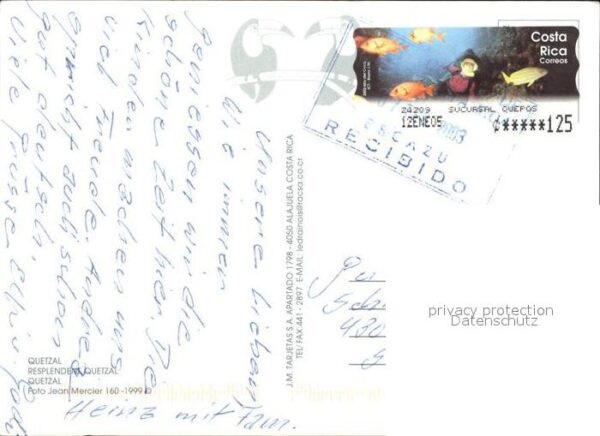 Unsere Lieben
Wie immer
geniessen wir die
schöne Zeit hier. Die
Kinder machen uns
viel Freude. Andrea
spricht auch schon
gut deutsch.
Viele Grüsse Elvi
Heinz mit Fam.
QUETZAL
RESPLENDENT QUETZAL
QUETZAL
Foto Jean Mercier 160 -1999 ©
J.M. TARJETAS S.A. APARTADO 1798 - 4050 ALAJUELA COSTA RICA
TEL/FAX:441 - 2897 E-MAIL:
Costa
Rica
Correos
24209 SUCURSAL QUEPOS
12ENE05 ₡*****125
ESCAZU
RECIBIDO
privacy protection
Datenschutz